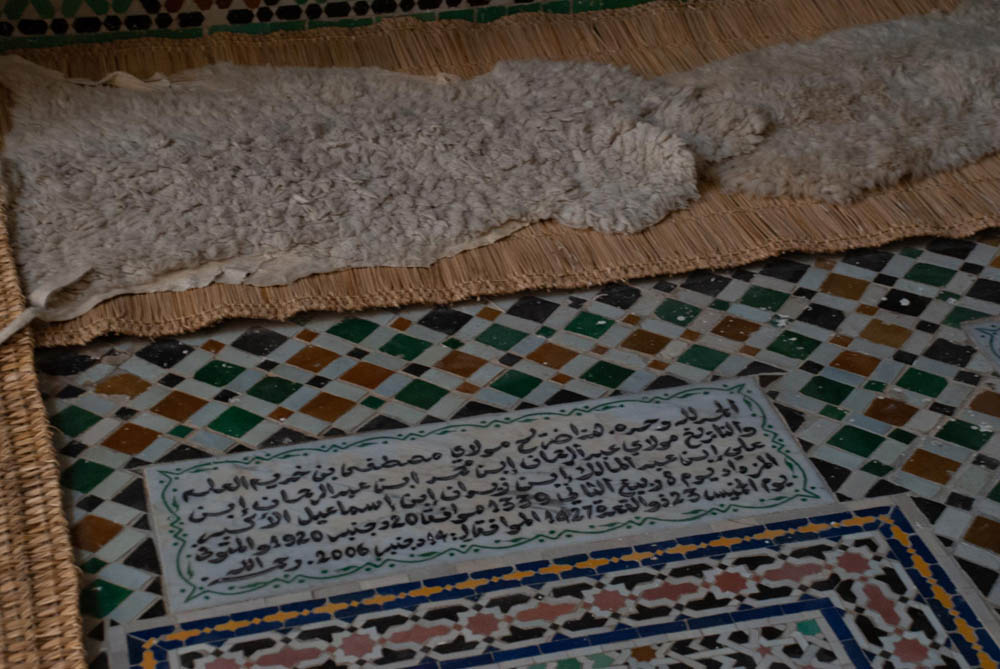 الحمد لله وحده هذا ضريح مولاي مصطفى بن خريم العلم
والتاريخ مولاي عبد الرحمان إبن محمد ابن عبد الرحمان إبن
علي إبن عبد المالك إبن زيدان إبن اسماعيل الأكبر
المزداد يوم 8 ربيع الثاني 1339 موافق 20 دجنبر 1920 والمتوفى
يوم الخميس 23 ذو القعدة 1427 الموافق ل: 14 دجنبر 2006. رحمه الله